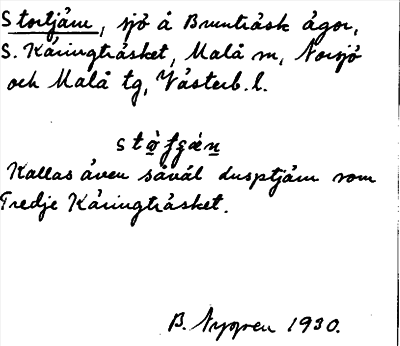 Stortjärn, sjö å Bruntråsk ägor,
S. Käringträsket, Malå m, Norsjö
och Malå tg, Västerb. l.
Kallas även såväl dusptjärn som
Tredje Käringträsket.
B. Nygren 1930.